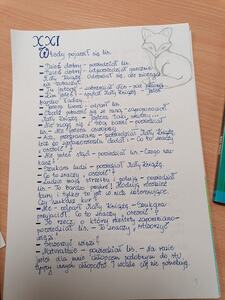 XXI
Wtedy pojawił się lis.
- Dzień dobry - powiedział lis.
- Dzień dobry - odpowiedział grzecznie
Mały Książę. Odwrócił się, ale niczego
nie zobaczył.
- Tu jestem -
- Kim jesteś? - spytał Mały Książę. - Jesteś
bardzo ładny...
- Jestem lisem - odparł lis.
- Chodź pobawić się ze mną - zaproponował
Mały Książę. - Jestem taki smutny...
- Nie mogę się z tobą bawić - powiedział
lis. - Nie jestem oswojony.
- Ach, przepraszam - powiedział Mały Książę,
lecz po
"oswoić"?
- Nie jesteś stąd - powiedział lis. - Czego
szukasz?
- Szukam ludzi - powiedział Mały Książę.
- Co to znaczy "oswoić"?
- Ludzie mają strzelby i polują - powiedział
lis. - To bardzo
kury i tylko to jest w nich interesujące.
Czy szukasz kur?
- Nie - odparł Mały Książę. - Szukam
przyjaciół. Co to znaczy "oswoić"?
- To rzecz, o której niestety zapomniano -
powiedział lis. - To znaczy "stworzyć
więzi".
- Stworzyć więzi?
- Naturalnie - powiedział lis. - Na razie
jesteś dla mnie chłopcem podobnym do stu
tysięcy innych chłopców. I wcale cię nie potrzebuję.